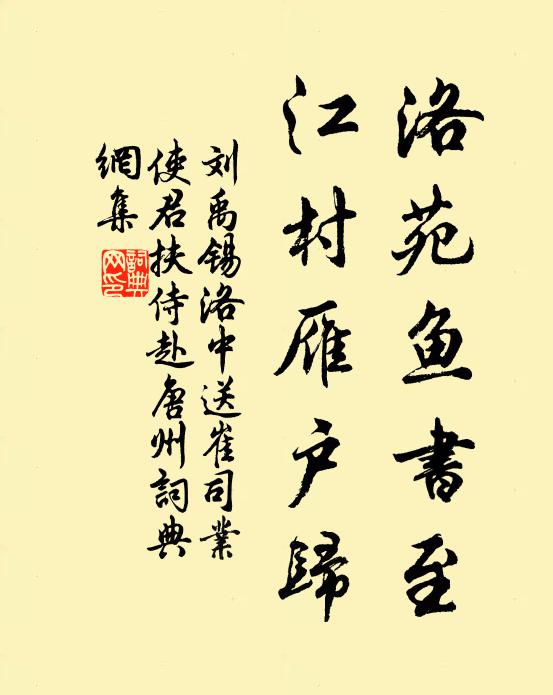 洛苑鱼書至
江村雁户歸
刘禹锡洛中送崔司業
使君扶侍赴唐州詞典
網集
詞典网印